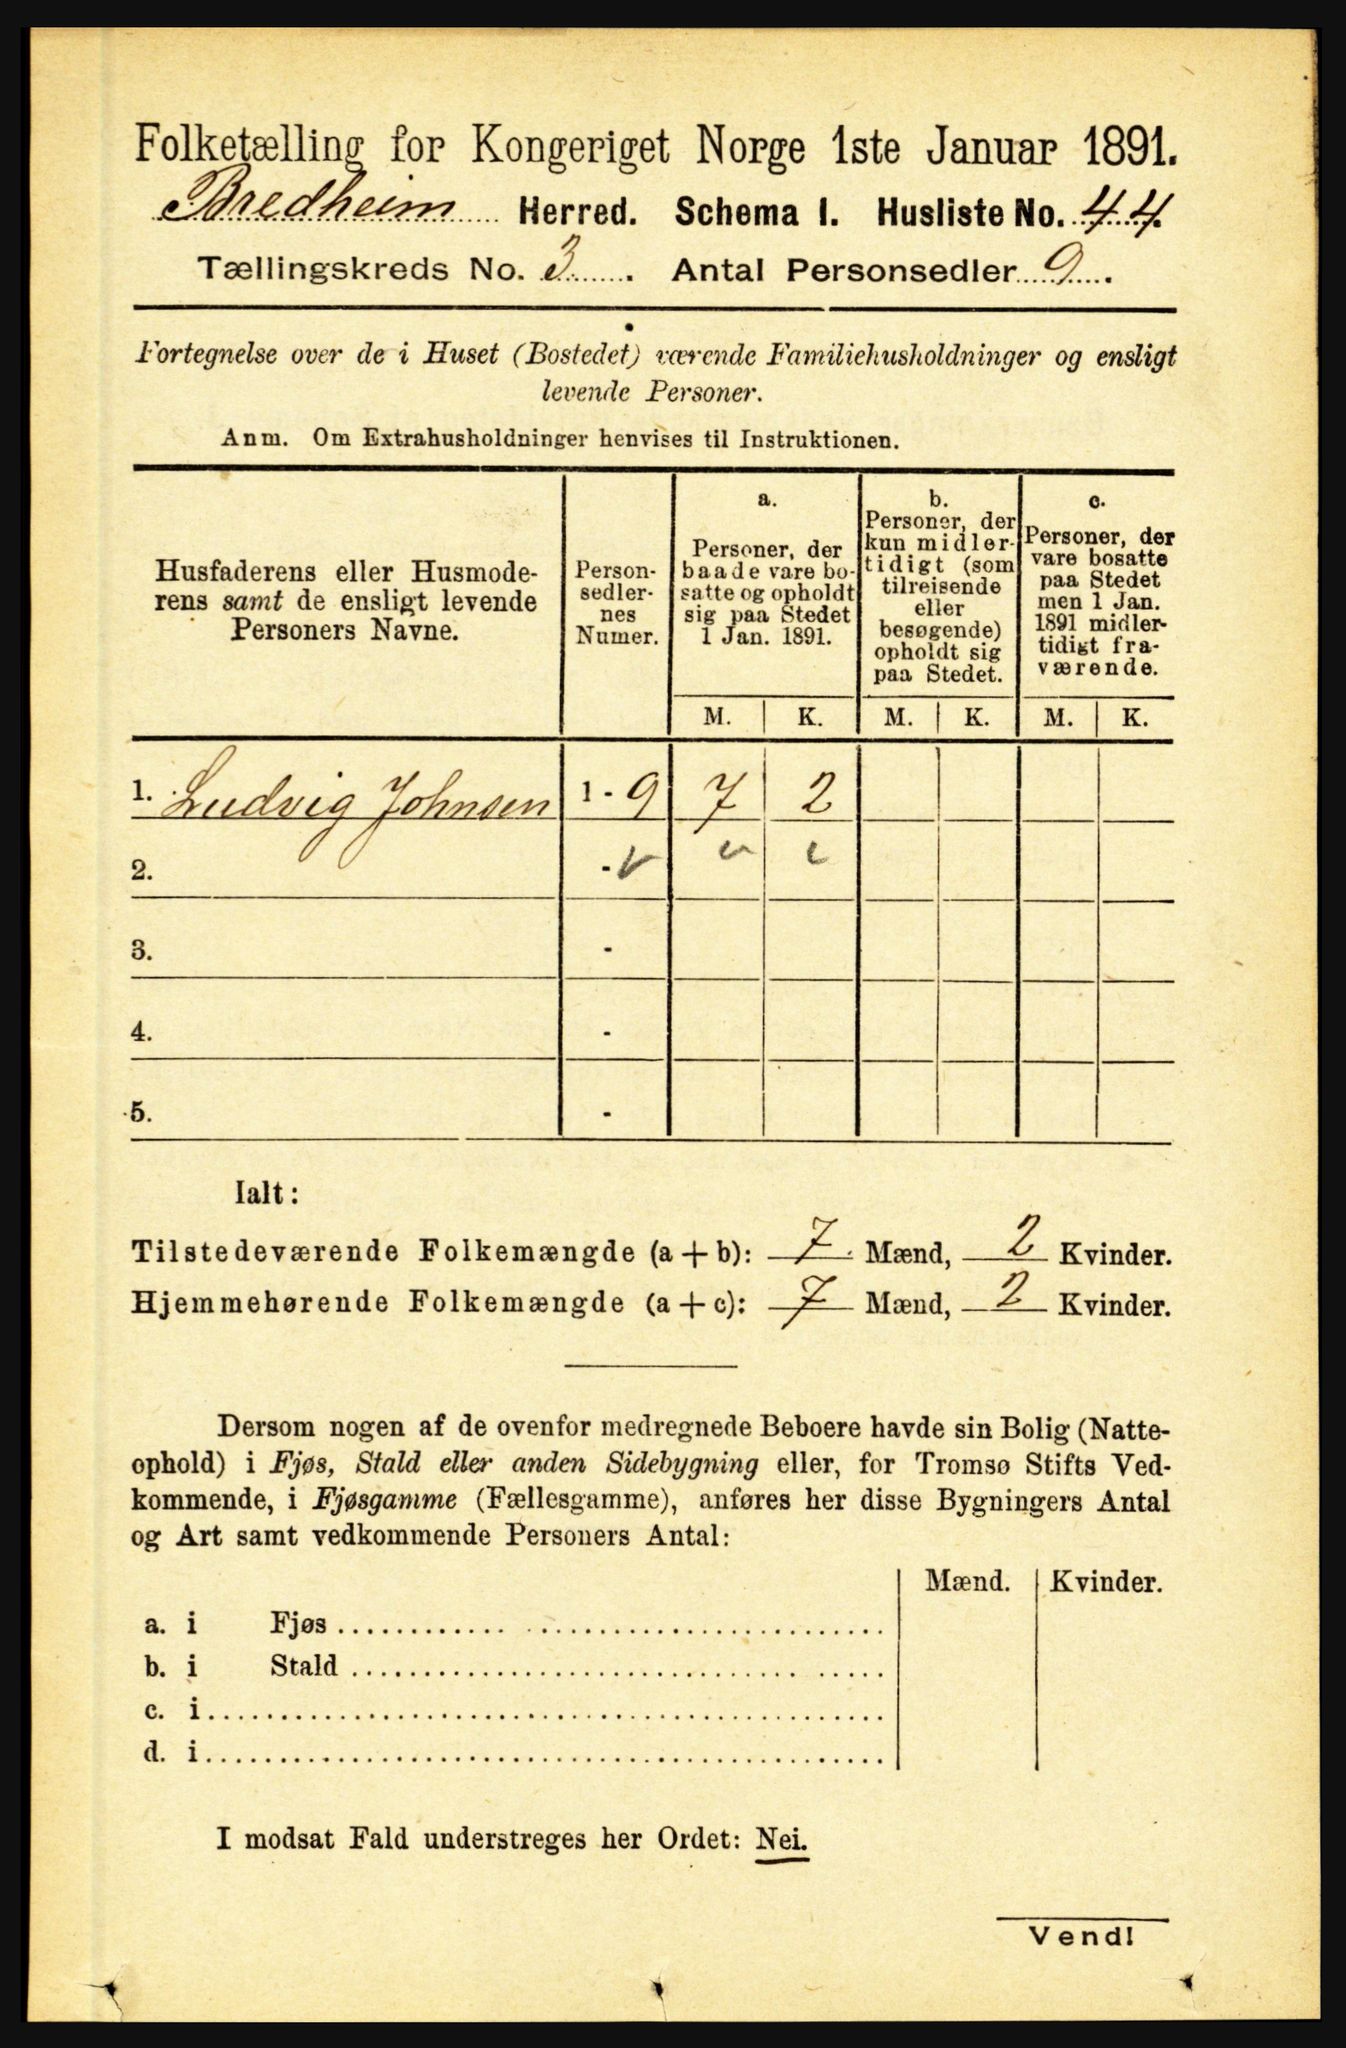 Folketælling for Kongeriget Norge 1ste Januar 1891.
Bredheim Herred. Schema I. Husliste No. 44.
Tællingskreds No. 3. Antal Personsedler 9.
Fortegnelse over de i Huset (Bostedet) værende Familiehusholdninger og ensligt
levende Personer.
Anm. Om Extrahusholdninger henvises til Instruktionen.
Husfaderens eller Husmode-
rens samt de ensligt levende
Personers Navne.
Person-
sedler-
nes
Numer.
a.
Personer, der
baade vare bo-
satte og opholdt
sig paa Stedet
1 Jan. 1891.
b.
Personer, der
kun midler-
tidigt (som
tilreisende
eller
besøgende)
opholdt sig
paa Stedet.
c.
Personer, der
vare bosatte
paa Stedet
men 1 Jan.
1891 midler-
tidigt fra-
værende.
M. K. M. K. M. K.
1. Ludvig Johnsen 1 - 9 7 2
2. -
3. -
4. -
5. -
Ialt:
Tilstedeværende Folkemængde (a + b): 7 Mænd, 2 Kvinder.
Hjemmehørende Folkemængde (a + c): 7 Mænd, 2 Kvinder.
Dersom nogen af de ovenfor medregnede Beboere havde sin Bolig (Natte-
ophold) i Fjøs, Stald eller anden Sidebygning eller, for Tromsø Stifts Ved-
kommende, i Fjøsgamme (Fællesgamme), anføres her disse Bygningers Antal
og Art samt vedkommende Personers Antal:
Mænd. Kvinder.
a. i Fjøs
b. i Stald
c. i
d. i
I modsat Fald understreges her Ordet: Nei.
Vend!